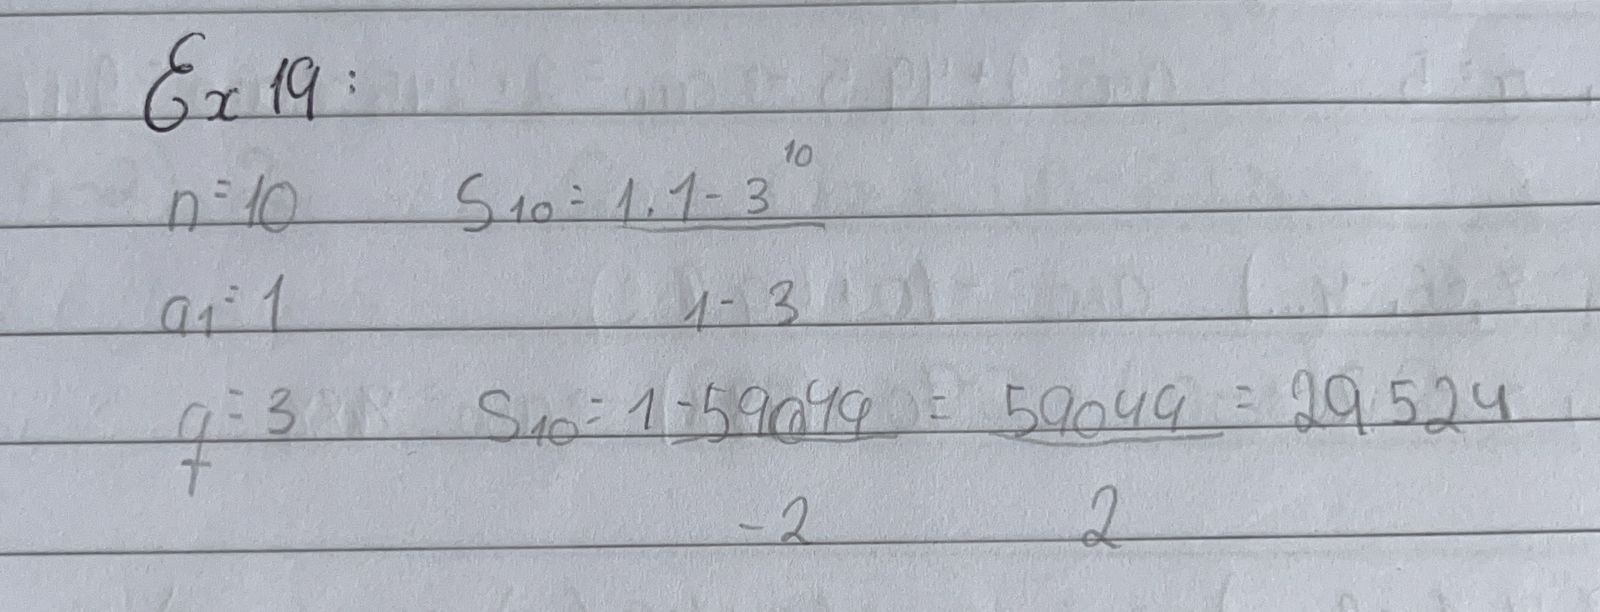 Ex 19:
n=10 S₁₀ = 1 . 1 - 3¹⁰
a₁=1 1 - 3
q=3 S₁₀ = 1 - 59049 = 59049 = 29.524
-2 2